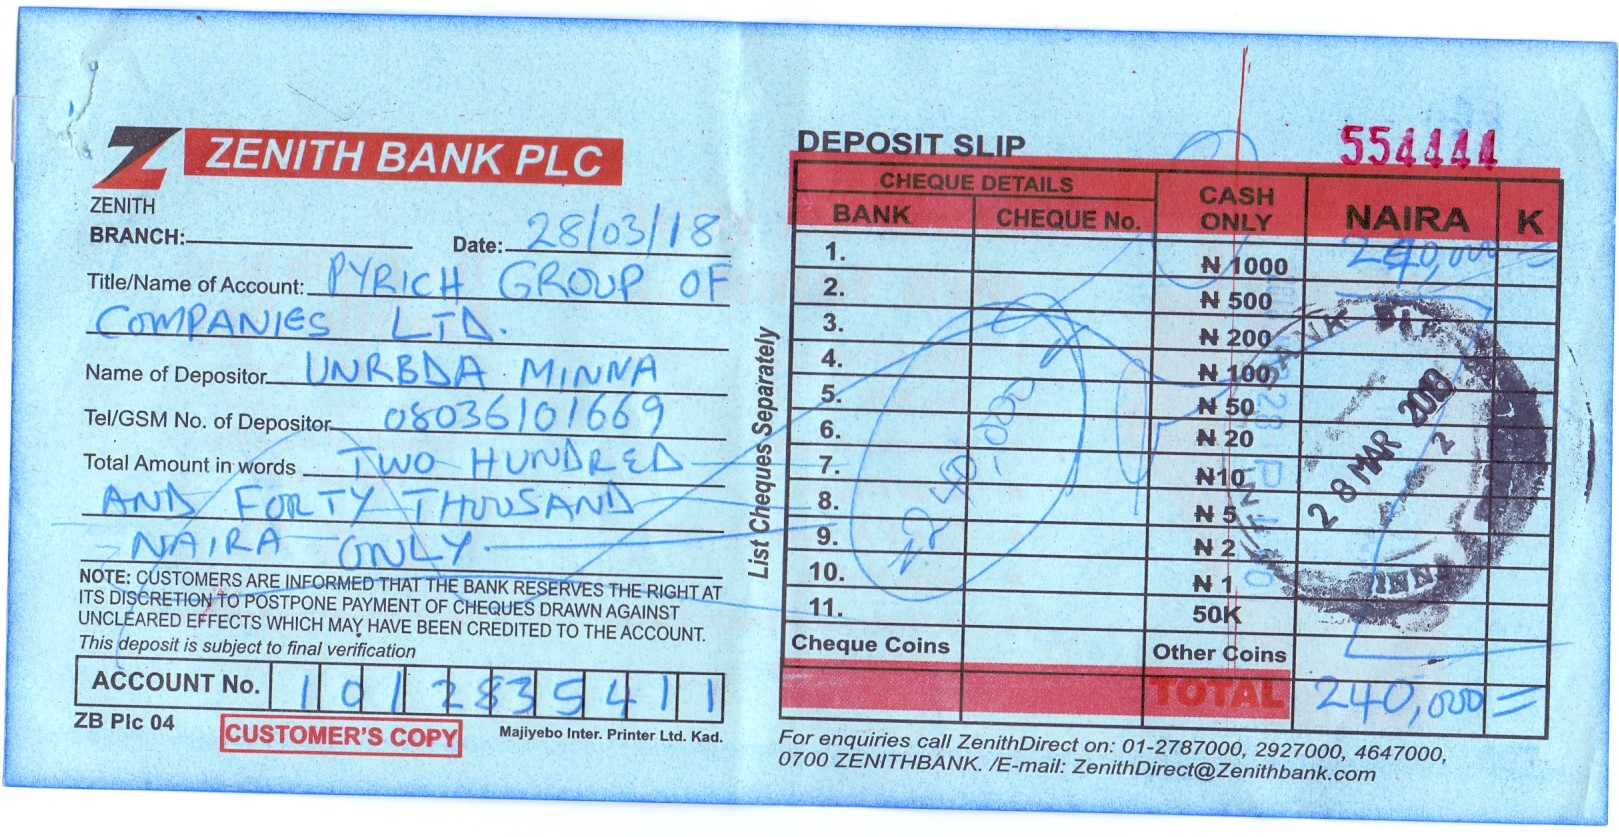 ZENITH BANK PLC
ZENITH
BRANCH: Date: 28/03/18
Title/Name of Account: PYRICH GROUP OF
COMPANIES LTD.
Name of Depositor UNRBDA MINNA
Tel/GSM No. of Depositor 08036101669
Total Amount in words TWO HUNDRED
AND FORTY THOUSAND
NAIRA ONLY.
NOTE: CUSTOMERS ARE INFORMED THAT THE BANK RESERVES THE RIGHT AT
ITS DISCRETION TO POSTPONE PAYMENT OF CHEQUES DRAWN AGAINST
UNCLEARED EFFECTS WHICH MAY HAVE BEEN CREDITED TO THE ACCOUNT.
This deposit is subject to final verification
ACCOUNT No. 1012835411
ZB Plc 04
CUSTOMER'S COPY
Majiyebo Inter. Printer Ltd. Kad.
DEPOSIT SLIP
554444
CHEQUE DETAILS
BANK CHEQUE No. CASH ONLY NAIRA K
List Cheques Separately
1. ₦ 1000 240,000 =
2. ₦ 500
3. ₦ 200
4. ₦ 100
5. ₦ 50
6. ₦ 20
7. ₦10
8. ₦ 5
9. ₦ 2
10. ₦ 1
11. 50K
₦240,000
BANK PLC
28 MAR 2018
2
MINNA
Cheque Coins Other Coins
TOTAL 240,000 =
For enquiries call ZenithDirect on: 01-2787000, 2927000, 4647000,
0700 ZENITHBANK. /E-mail: ZenithDirect@Zenithbank.com